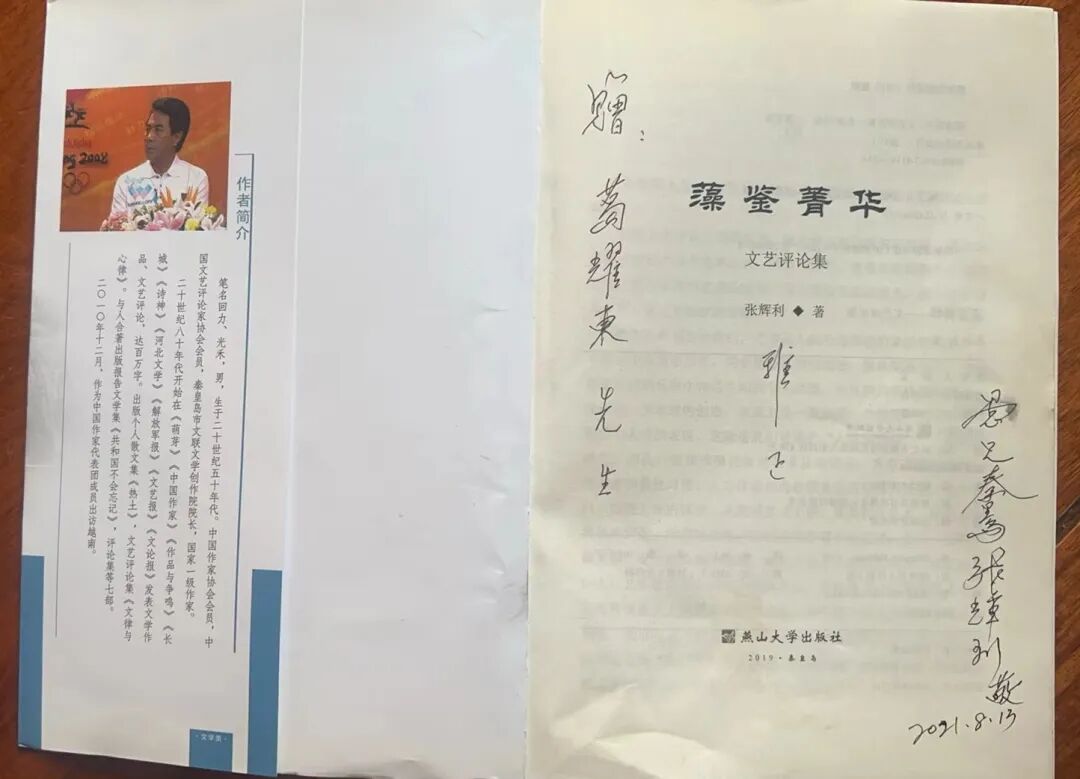 2008
作者简介
笔名回力、光禾,男,生于二十世纪五十年代。中国作家协会会员,中
国文艺评论家协会会员,秦皇岛市文联文学创作院院长,国家一级作家。
二十世纪八十年代开始在《萌芽》《中国作家》《作品与争鸣》《长
城》《诗神》《河北文学》《解放军报》《文艺报》《文论报》发表文学作
品、文艺评论,达百万字。出版个人散文集《热土》,文艺评论集《文律与
心律》。与人合著出版报告文学集《共和国不会忘记》,评论集等七部。
二〇一〇年十二月,作为中国作家代表团成员出访越南。
·文学类·
赠:
葛耀東先生
雅正
藻鉴菁华
文艺评论集
张辉利◆著
燕山大学出版社
2019·秦皇岛
愚兄秦 张辉利 敬
2021.8.13